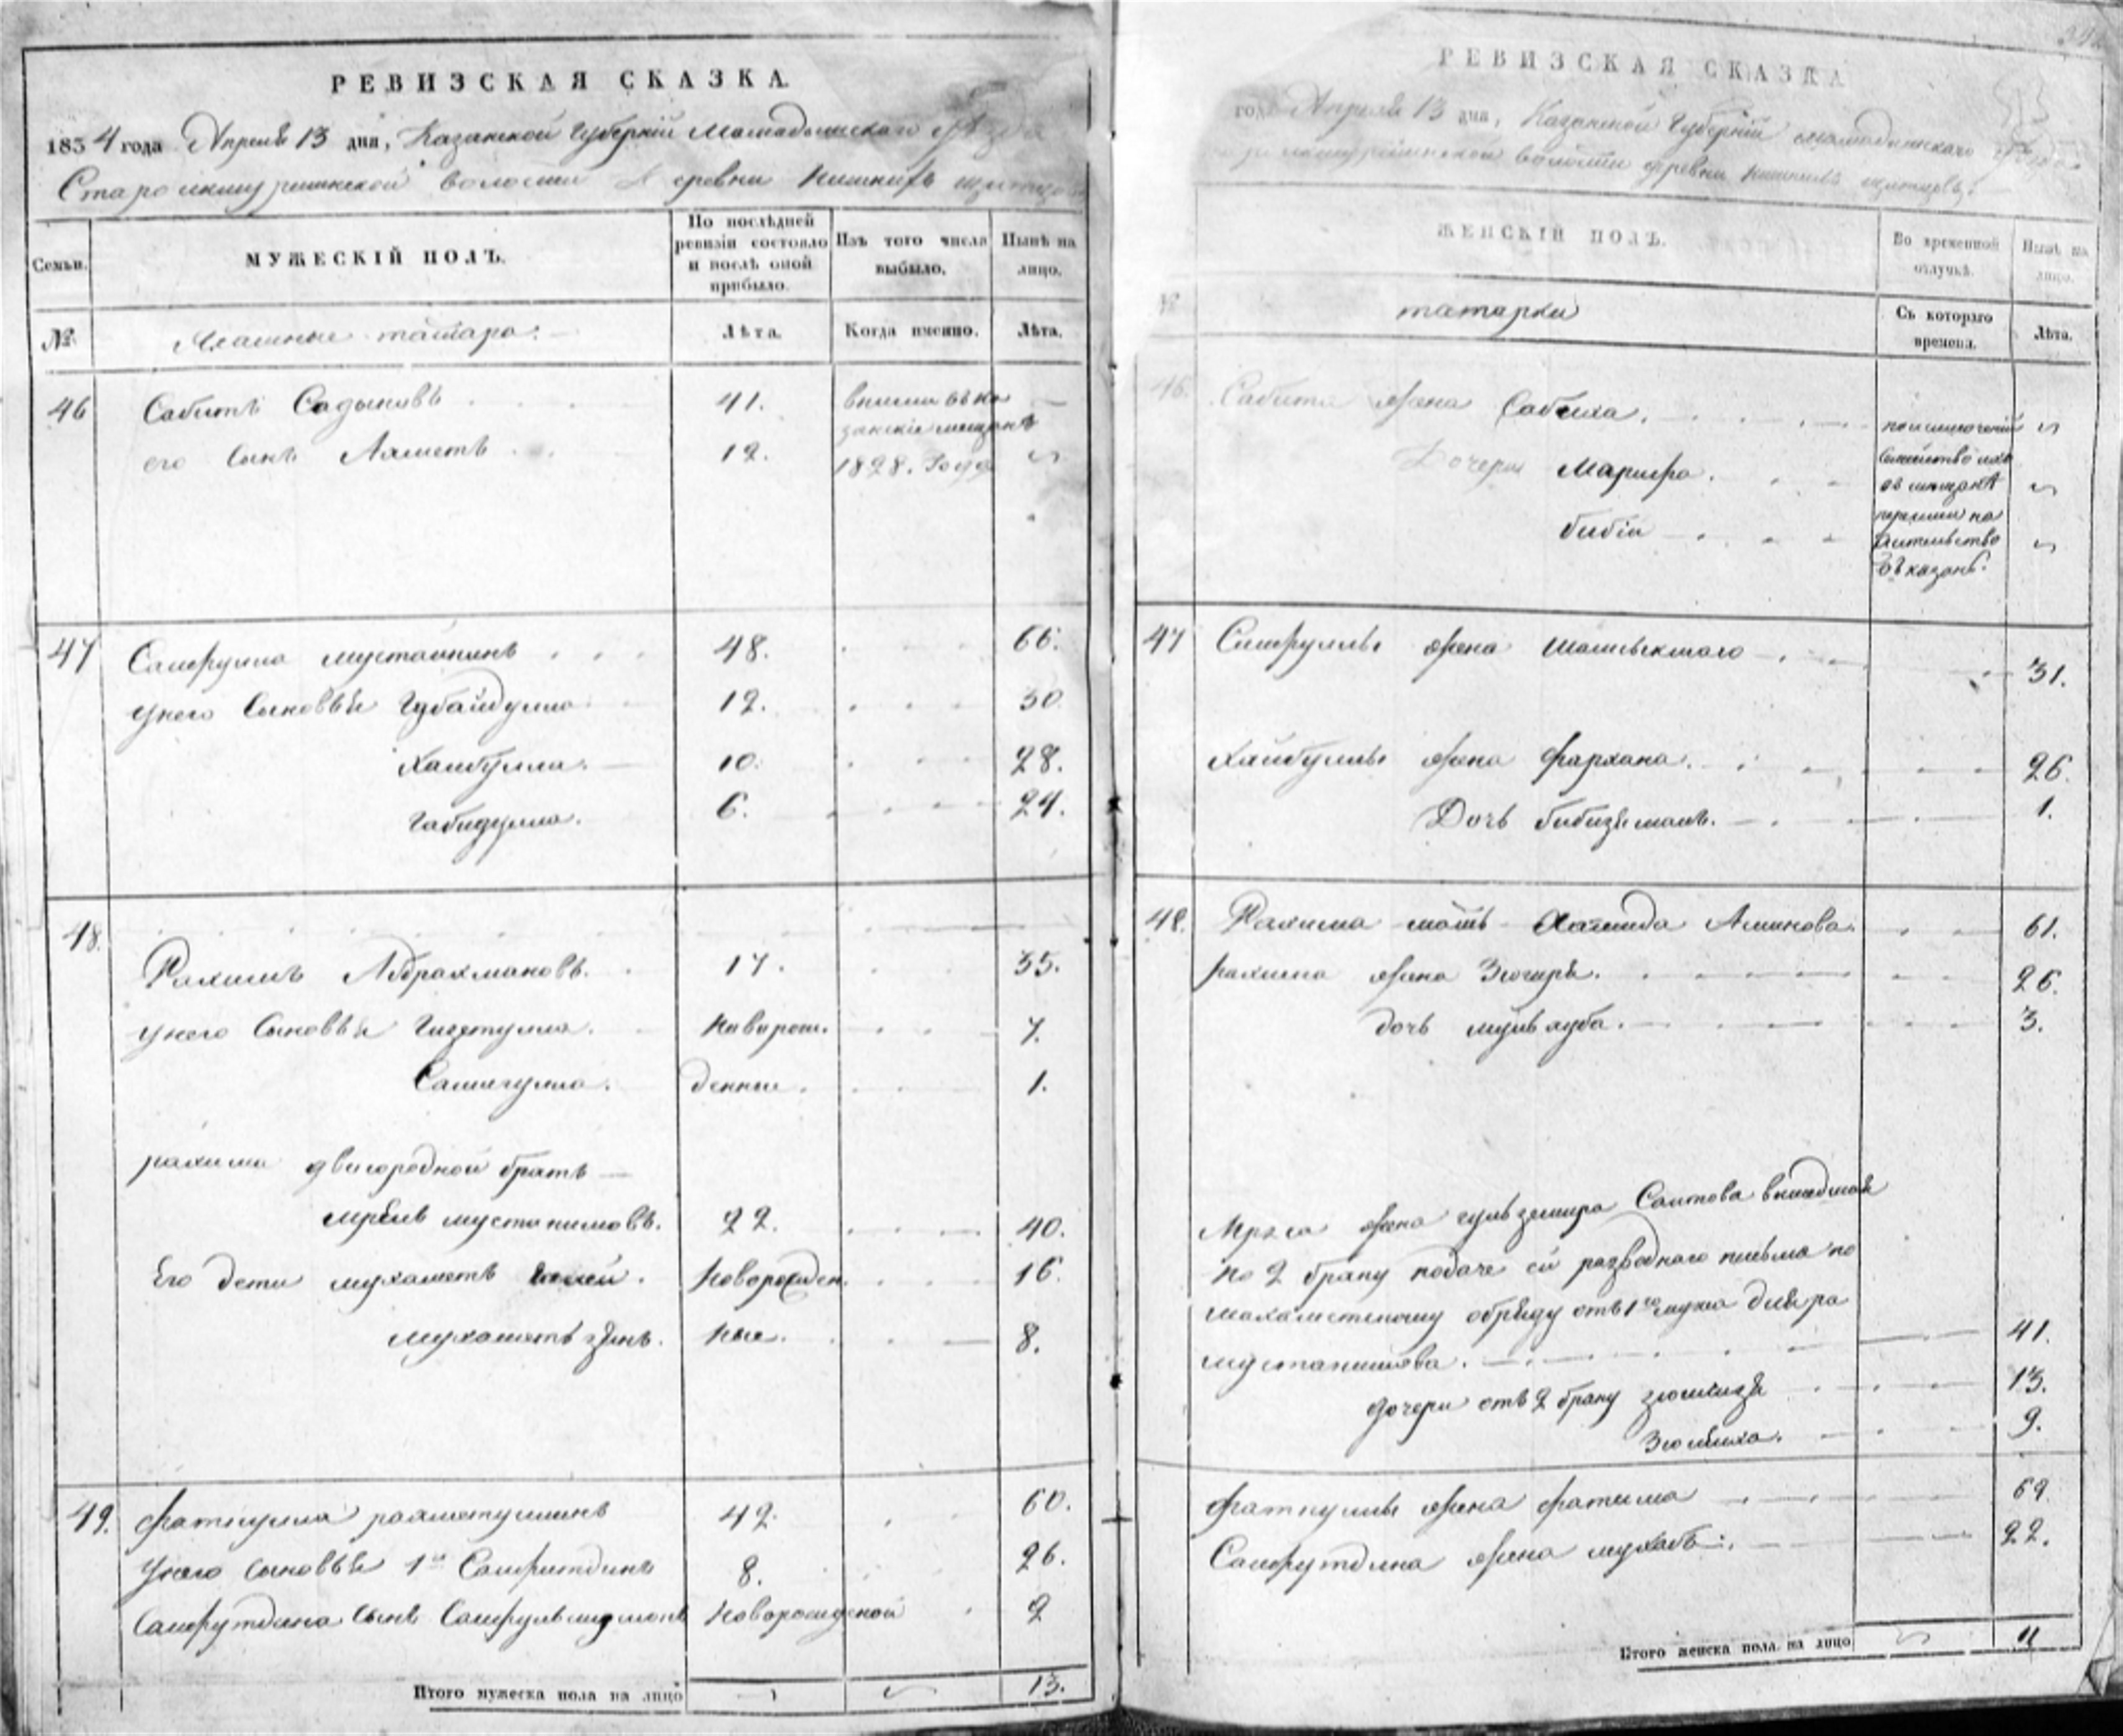 РЕВИЗСКАЯ СКАЗКА.
1834 года Апреля 13 дня, Казанской Губернiй Мамадышскаго уѣзда
Староикшурминской волости Деревни
Семьи.
МУЖЕСКIЙ ПОЛЪ.
По послѣдней ревизiи состояло и послѣ оной прибыло.
Изъ того числа выбыло.
Нынѣ на лицо.
№.
Ясашные татара.
Лѣта.
Когда именно.
Лѣта.
46 Сабитъ Садыковъ 41. вышли въ ка
занскiе мещанѣ
его сынъ Ахметъ 12. 1828. года
47 Сайфулла мустакинъ 48. 66.
Унего сыновья Губайдулла 12. 30
Хайбулла. 10. 28.
Габидулла. 6. 24.
48.
Рахимъ Абдрахмановъ. 17. 35.
Унего сыновья Гизетулла. Новорож. 7.
Самигулла. денные. 1.
рахима двоюродной братъ
мустакимовъ. 22. 40.
Его дети мухаметъ Новорожден. 16.
мухаметъ зянъ. ные. 8.
49. Фаткулла рахметуллинъ 42. 60.
Унего сыновья 1й Сайфитдинъ 8. 26.
Сайфутдина сынъ Сайфульмулюкъ Новорожденой 2
Итого мужеска пола на лицо 13.
РЕВИЗСКАЯ СКАЗКА
года Апреля 13 дня, Казанской Губернiй Мамадышскаго уѣзда
волости деревни
ЖЕНСКIЙ ПОЛЪ.
Во временной отлучкѣ.
Нынѣ на лицо.
№
татарки
Съ котораго времени.
Лѣта.
46. Сабита жена Сабиха.
Дочери Марифа.
бибiи
семейство ихъ
въ мещанѣ
перешли на
жительство
въ казань.
47 Сайфуллы жена 31.
Хайбуллы жена Фархана. 26.
Дочь бибизямалъ. 1.
48. Рахима мать Хамида Аминова. 61.
рахима жена Зюгаря. 26.
дочь мулвауба. 3.
жена гульземира Саитова вышедшая
по 2 браку подаче ей разводнаго письма по
махаметскому обряду отъ 1го мужа
мустакимова. 41.
дочери отъ 2 браку 13.
9.
Фаткуллы жена фатима 62.
Сайфутдина жена 22.
Итого женска пола на лицо 11